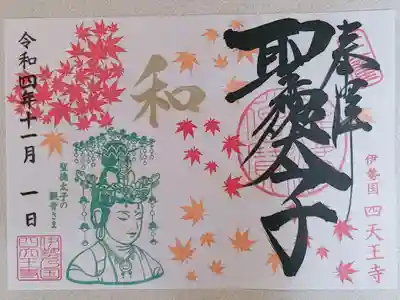 奉拝
聖徳太子
伊勢国 四天王寺
和
聖徳太子の
観音さま
令和四年十一月 一日